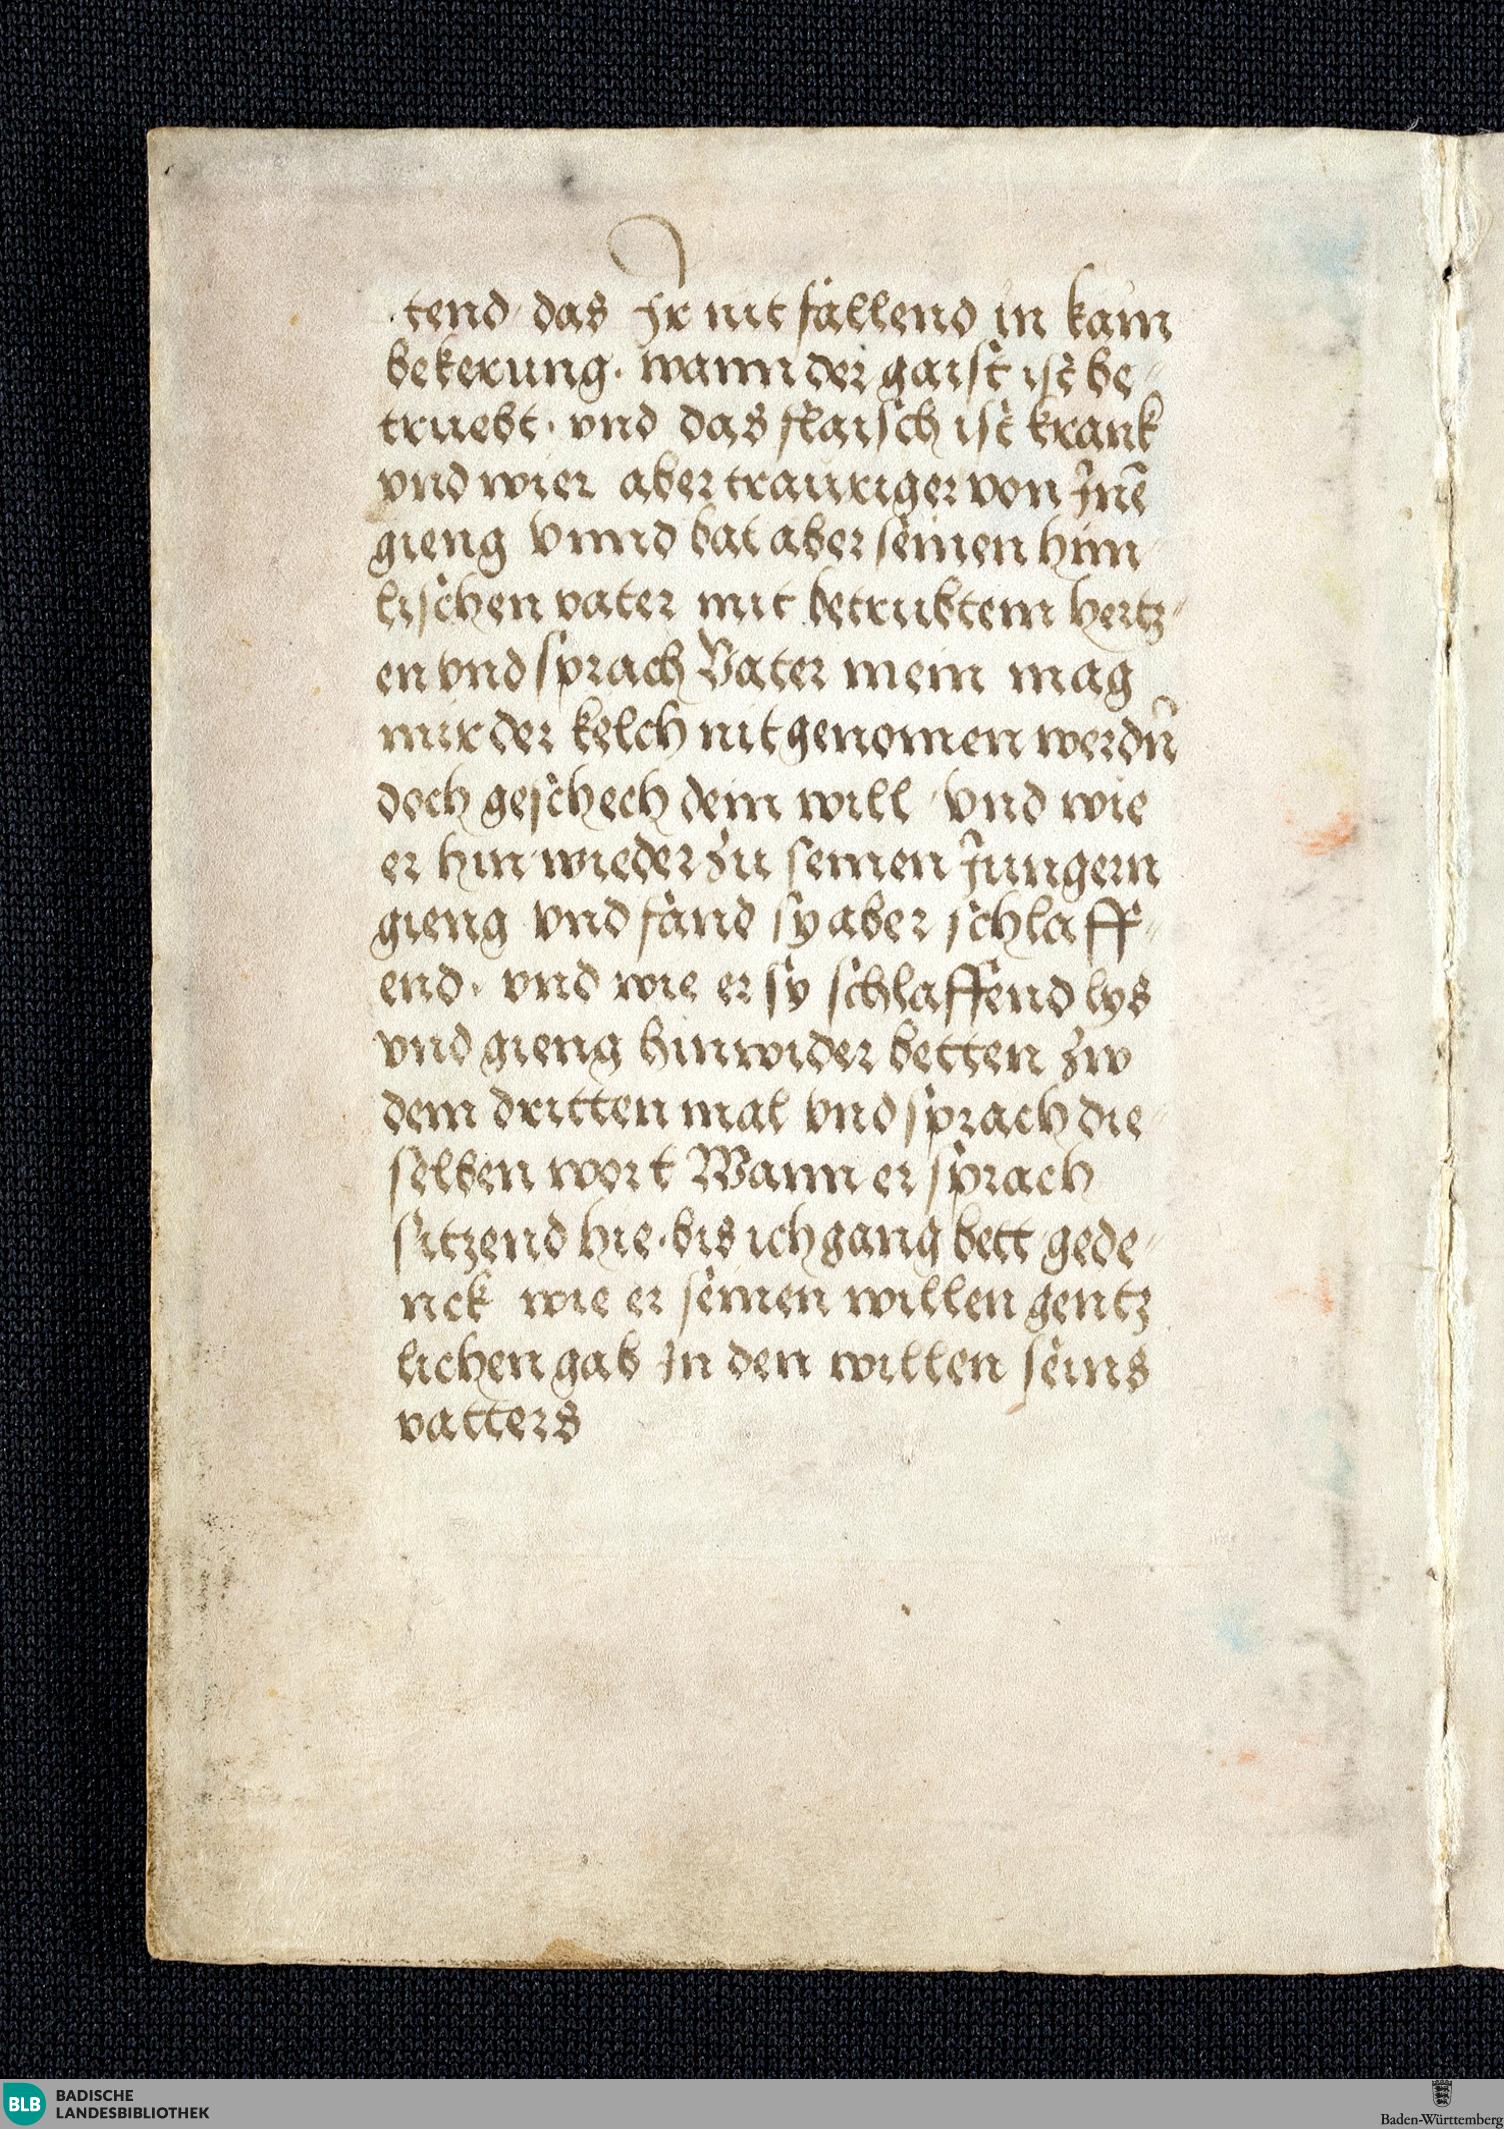 tend das Jr nit fallend in kain
bekerung. wann der gaist ist be-
truebt. vnd das flaisch ist krank
vnd wier aber trauriger von Jnē
gieng Vnnd bat aber seinen him
lischen vater mit betrubtem hertz-
en vnd sprach Vater mein mag
mir der kelch nit genomen werdn̄
doch geschech dein will Vnd wie
er hin wieder zu seinen Jungern
gieng vnd fand sy aber schlaff-
end. vnd wie er sy schlaffend lys
vnd gieng hinwider betten zw
dem dritten mal vnd sprach die-
selben wort Wann er sprach
sitzend hie. bis ich gang bett gede-
nck wie er seinen willen gentz
lichen gab Jn den willen seins
vatters
BLB BADISCHE
LANDESBIBLIOTHEK
Baden-Württemberg